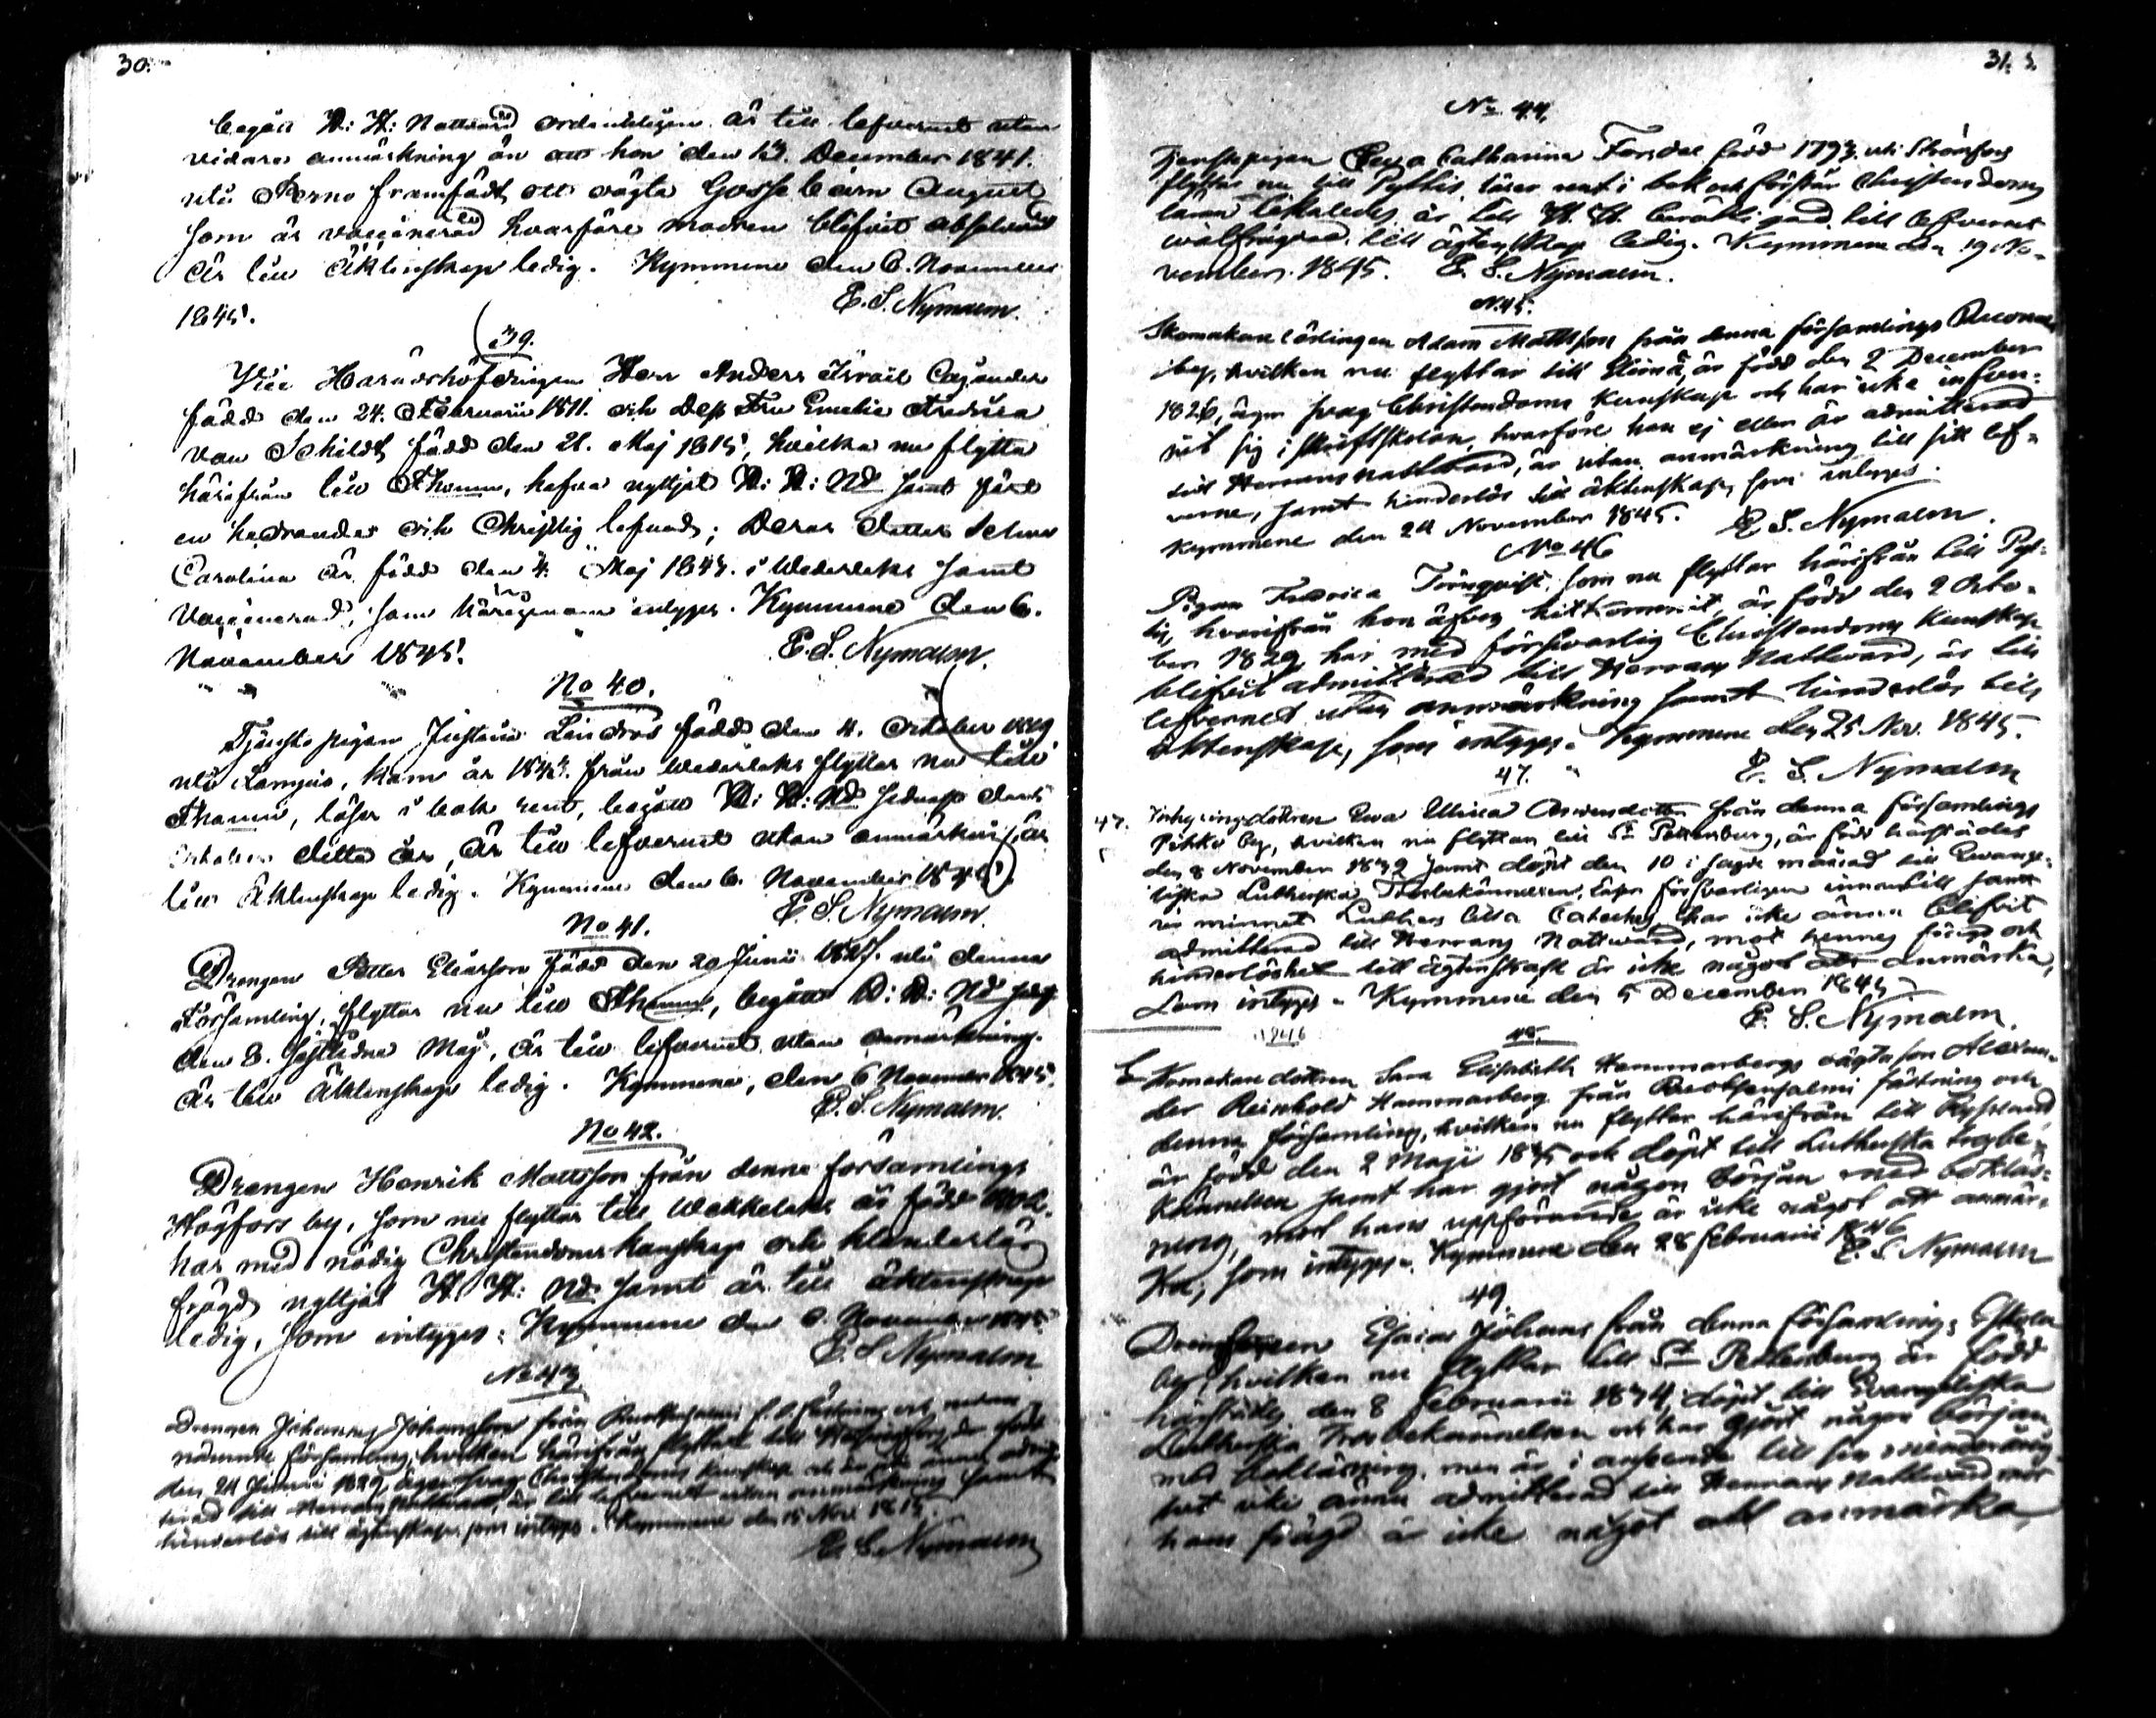 30.
begått H: H: Nattvard ordentligen är till lefvernet utan
vidare anmärkning än att hon den 13. December 1841.
uti Perno framfödt ett oägta Gosse barn August
som är vaccinerad hvarföre modren blifvit absolverad
är till Äktenskap ledig. Kymmene den 6. November
1845.
E. S. Nymalm.
39.
Vice Häradshöfdingen Herr Anders Israel Cajander
född den 24. Februarii 1811. och Dess Fru Emelie Fredrica
von Schildt född den 21. Maj 1815, hvilka nu flytta
härifrån till Thomu, hafva nyttjat H: H: Nd samt fört
en hedrande och Christlig lefnad; Deras dotter Selma
Carolina är född den 4. Maj 1843. i Wederlaks samt
Vaccinerad; som härigenom intyges. Kymmene den 6.
November 1845.
E. S. Nymalm.
No 40.
Tjenste pigan Justina Lindros född den 4. October 1819
uti kom år från Wederlaks flyttar nu till
Thomu, läser i bok rent, begått H: H: Nd sednast den
October detta år, är till lefvernet utan anmärkning, är
till Äktenskap ledig. Kymmene den 6. November 1845.
E. S. Nymalm.
No 41.
Drengen Petter Eliasson född den 29 Junii 1827. uti denna
Församling, flyttar nu till Thomu, begått H: H: Nd sedn
den 8. sistledne Maj, är till lefvernet utan anmärkning.
är till Äktenskap ledig. Kymmene, den 6 November 1845.
E. S. Nymalm.
No 42.
Drengen Henrik Mattsson från denna församlings
Högfors by, som nu flyttar till Wekkelaks är född
har med nödig Christendoms kunskap och klanderlös
frägd nyttjat H. H: Nd: samt är till äktenskap
ledig, som intyges; Kymmene den 6. November 1845.
E. S. Nymalm
No 43.
Drengen Johannes Johansson från
nämnde församling, hvilken härifrån flyttar till
den 24 Junii 1829, äger svag Christendoms kunskap och är
terad till Herrans Nattvard, är till lefvernet utan anmärkning samt
hinderlös till ägtenskap, som intyges. Kymmene den 15 Nov. 1845.
E. S. Nymalm
31.
No 44.
Tjenstepigan Catharina född 1793. uti Strömfors
flyttar nu till Pyttis, läser rent i bok och förstår christendoms
läran likaledes, är till H. H. berättigad, till lefvernet
wälfrägdad, till ägtenskap ledig. Kymmene den 19 No-
vember 1845. E. S. Nymalm.
N. 45.
Skomakare lärlingen Adam Mattsson från denna församlings
by, hvilken nu flyttar till Elimä, är född den 2 December
1826, äger svag Christendoms kunskap och har icke infun-
nit sig i skriftskolan, hvarföre han ej eller är admitterad
till Herrans nattvard, är utan anmärkning till sitt lef-
verne, samt hinderlös till äktenskap, som intyges.
Kymmene den 24 November 1845. E. S. Nymalm.
No 46
Pigan Fredrica Törnqvist som nu flyttar härifrån till Pyt-
tis, hvarifrån hon äfven hitkommit, är född den 2 Octo-
ber 1829, har med försvarlig Christendoms kunskap
blifvit admitterad till Herrans Nattvard, är till
lefvernet utan anmärkning samt hinderlös till
äktenskap, som intyges. Kymmene den 25 Nov. 1845.
E. S. Nymalm
47.
47. Inhysingsdottren Eva Ulrica från denna församlings
Pihko by, hvilken nu flyttar till St Pettersburg, är född härstädes
den 8 November 1832 samt döpt den 10 i sagde månad till Evange-
liska Lutherska Trosbekännelsen, läser försvarligen innantill samt
ur minnet Luthers lilla Cateches, har icke ännu blifvit
admitterad till Herrans Nattward, mot hennes frägd och
hinderlöshet till ägtenskap är icke något att anmärka,
som intyges. Kymmene den 5 December 1845.
E. S. Nymalm.
1846
48.
Skomakare dottren Sara Elisabeth Hammarbergs oägta son Alexan-
der Reinhold Hammarberg från Ruotsensalmi fästning och
denna församling, hvilken nu flyttar härifrån till Ryssland,
är född den 2 Maji 1835 och döpt till Lutherska trosbe-
kännelsen samt har gjort någon början med bokläs-
ning, mot hans uppförande är icke något att anmär-
ka, som intyges. Kymmene den 28 Februarii 1846
E. S. Nymalm
49.
Esaias Johans från denna församlings Eskola
by, hvilken nu flyttar till St Pettersburg är född
härstädes den 8 Februarii 1834, döpt till Evangeliska
Lutherska Trosbekännelsen och har gjort någon början
med bokläsning, men är i anseende till sin minderårig
het icke ännu admitterad till Herrans Nattward mot
hans frägd är icke något att anmärka,